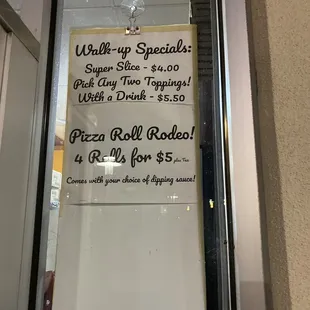 Walk-up Specials:
Super Slice - $4.00
Pick Any Two Toppings!
With a Drink - $5.50
Pizza Roll Rodeo!
4 Rolls for $5 plus Tax
Comes with your choice of dipping sauce!